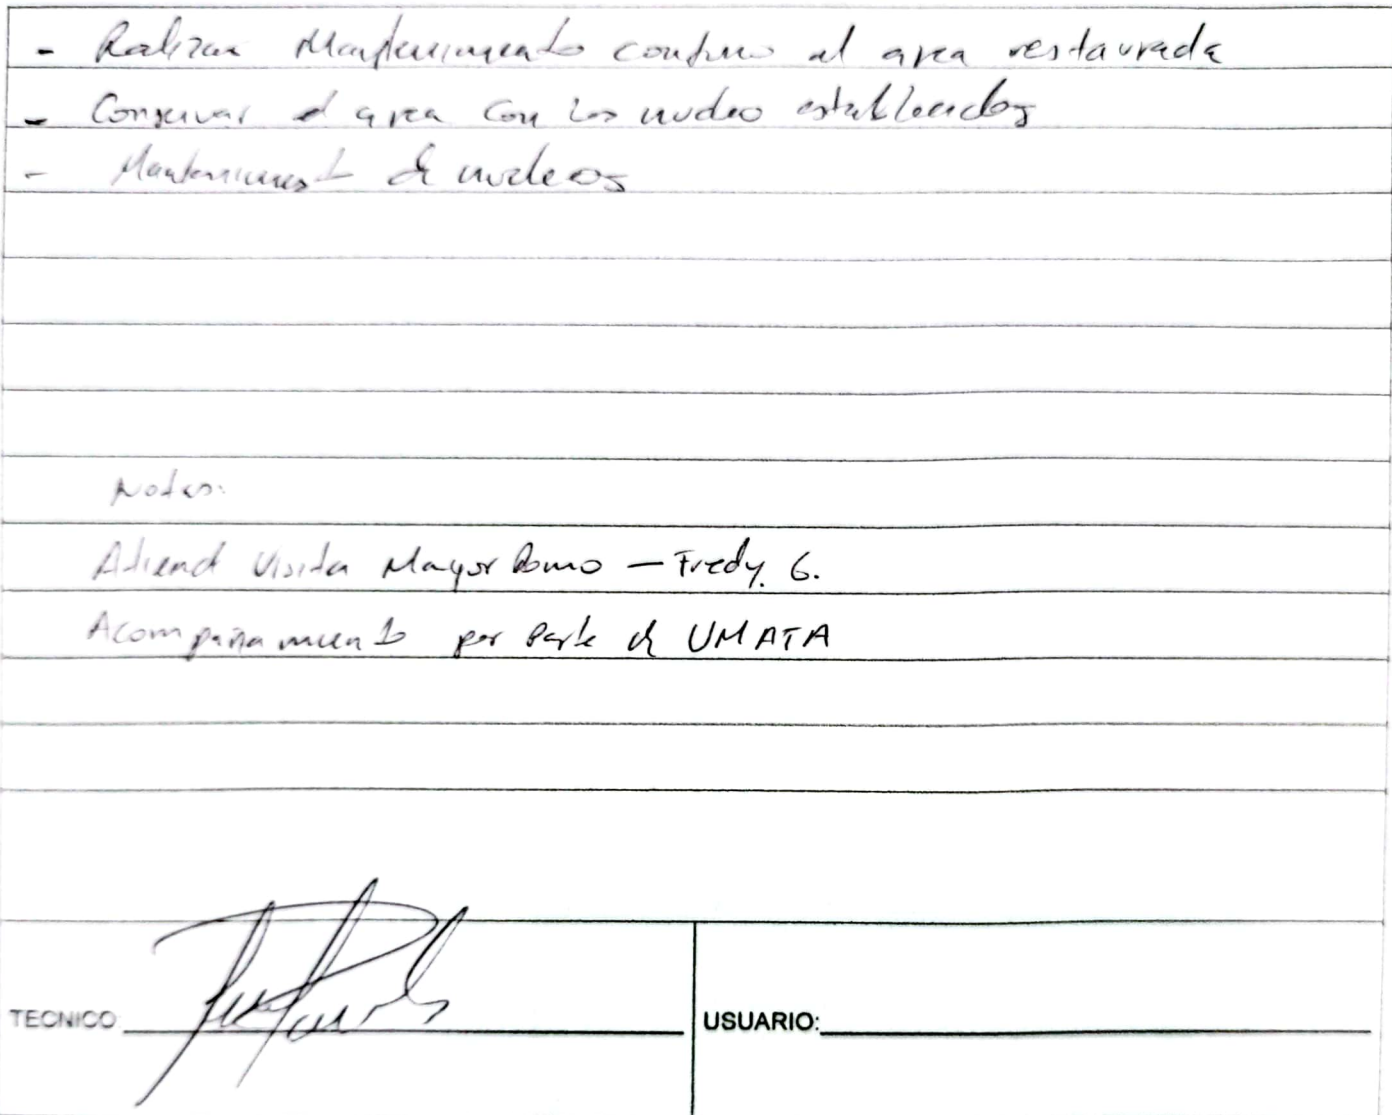 - Realizar Mantenimiento continuo al area restaurada
- Conservar el area con los nucleo establecidos
- Mantenimiento de nucleos
Notas:
Atiend visita Mayor Domo - Fredy. G.
Acompañamiento por Parte de UMATA
TECNICO
USUARIO: